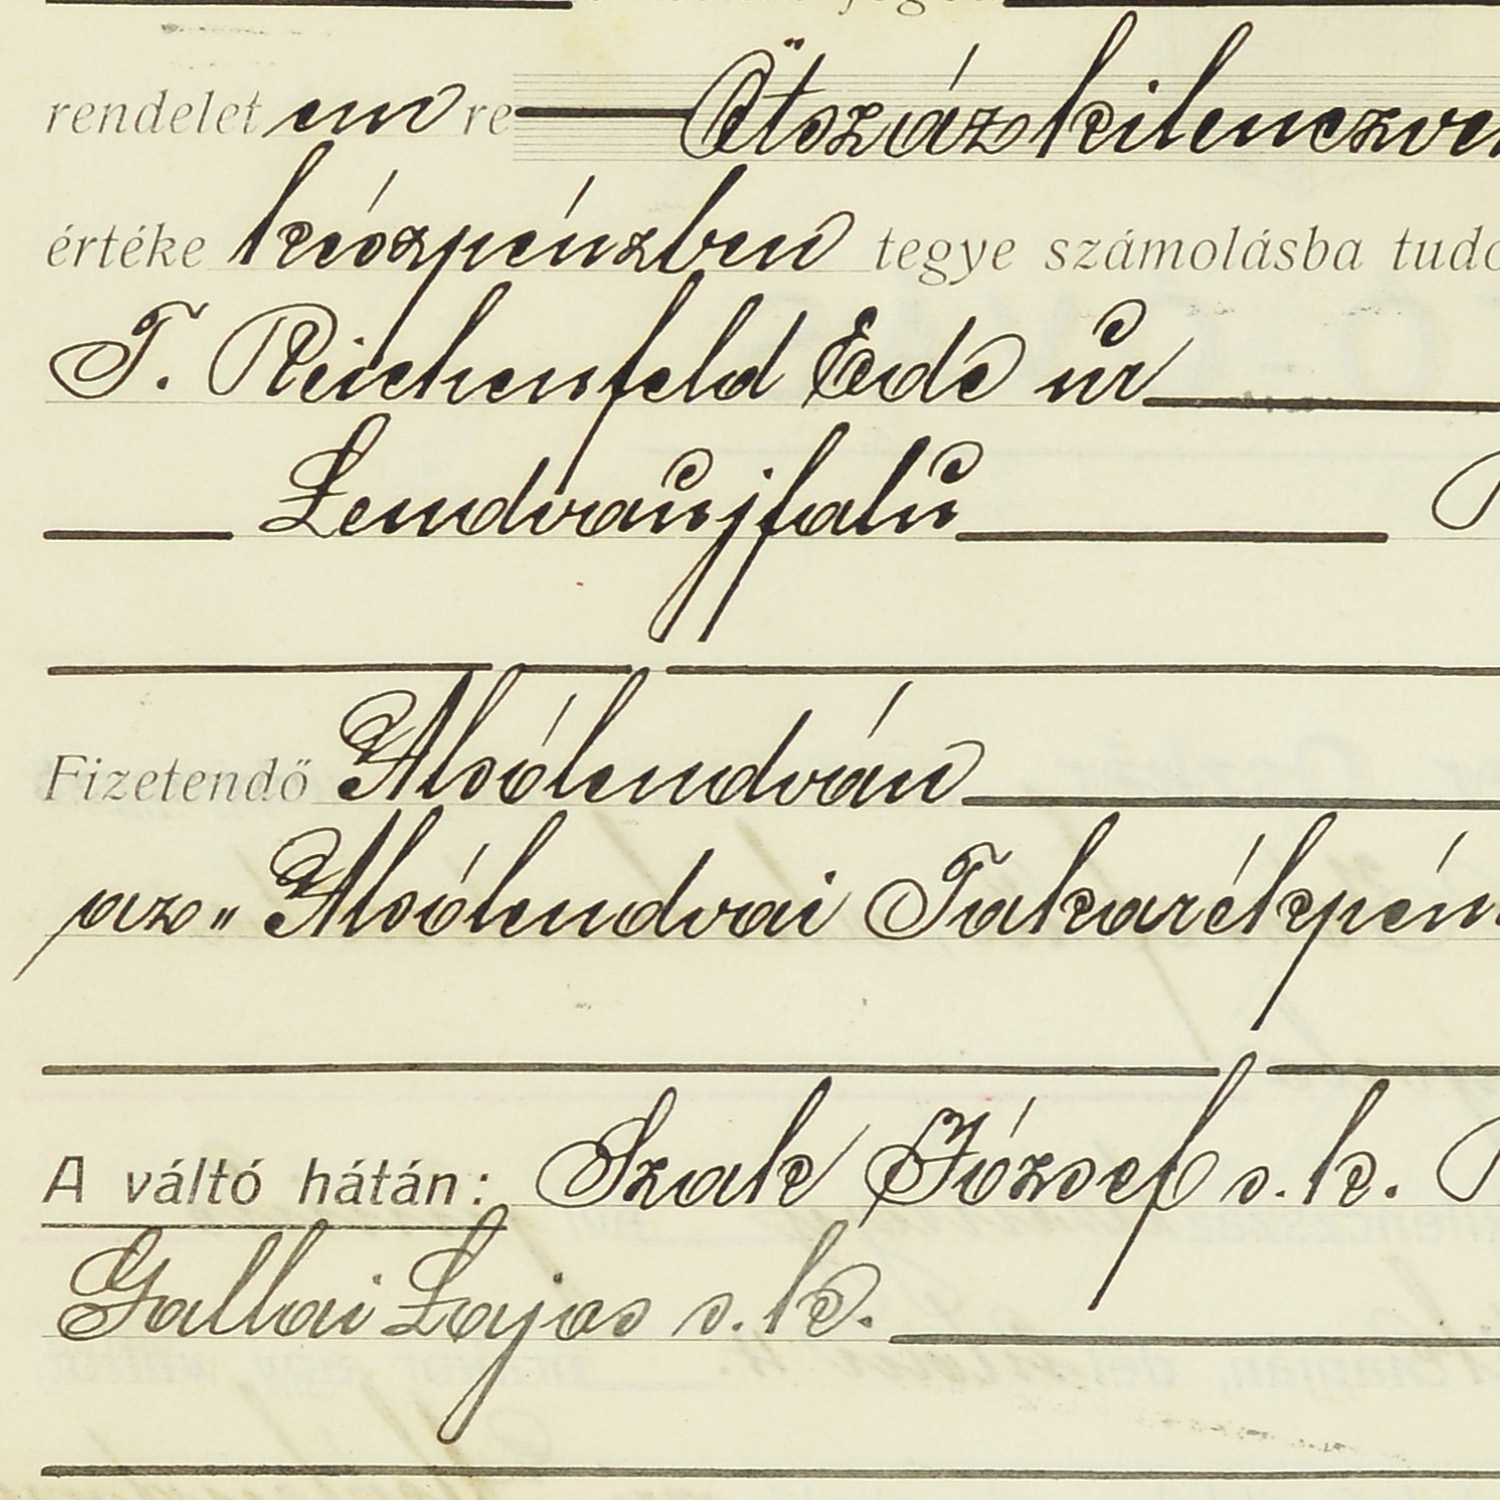 rendelet em re Ötszázkilenczve
értéke készpénzben tegye számolásba tudó
T. Reichenfeld Ede úr
Lendvaujfalu
Fizetendő Alsólendván
az „Alsólendvai Takarékpén
A váltó hátán: Szak József s. k.
Gallai Lajos s. k.